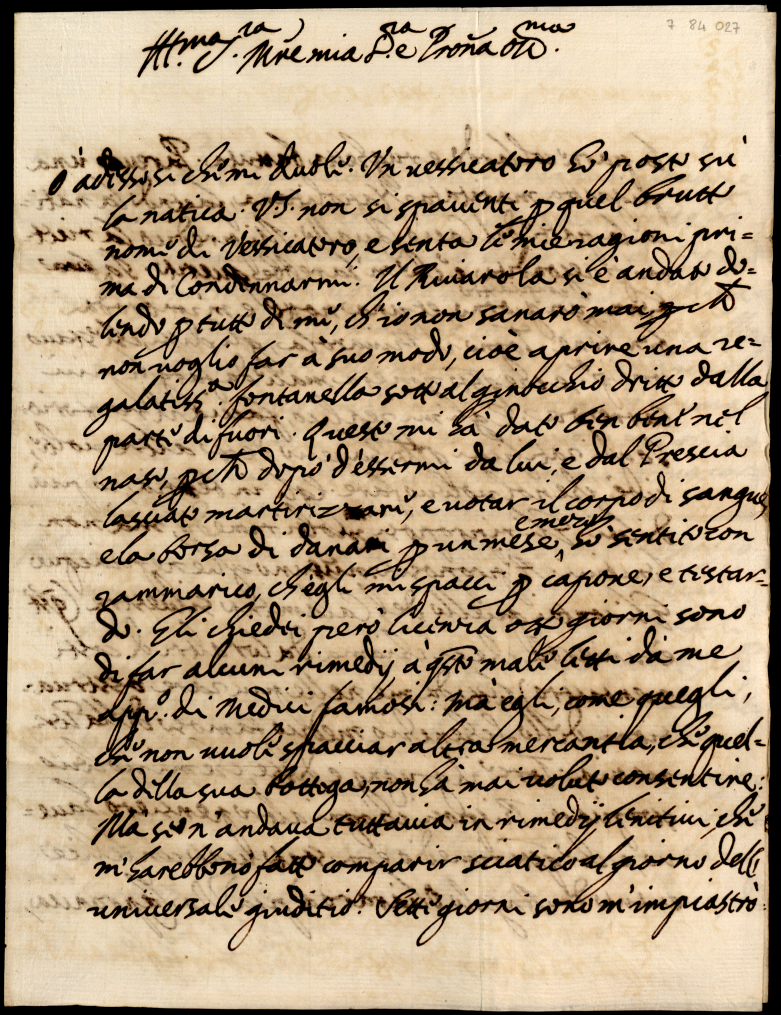 7 84 027
Ill.ma S.ra Mre mia S.ra e Proña oss.ma
O' adesso si che mi duole. Un vessicatoro hò posto sù
la natica. V.S. non si spaventi p quel brutto
nome di vessicatoro, e senta le mie ragioni pri=
ma di condennarmi. Il Rivarola si è andato do=
lendo p tutto di me, ch'io non sanarò mai, pchè
non voglio far à suo modo, cioè aprire una re=
galatiss.a fontanella sotto al ginocchio dritto dalla
parte di fuori. Questo mi hà dato ben bene nel
naso, pchè dopò d'essermi da lui, e dal Prescia
lasciato martirizzare, e votar il corpo di sangue,
e la borsa di danari p un mese e mezzo, hò sentito con
rammarico, ch'egli mi spacci p capone, e testar=
do. Gli chiedei però licenza otto giorni sono
di far alcuni rimedij à qsto male letti dà me
app.o di Medici famosi: mà egli, come quegli,
che non vuole spacciar altra mercantia, che quel=
la della sua bottega, non hà mai voluto consentire:
Mà se n'andava tuttavia in rimedij lenitivi, che
m'harebbono fatto comparir sciatico al giorno dell
universale giuditio. Sette giorni sono m'impiastrò